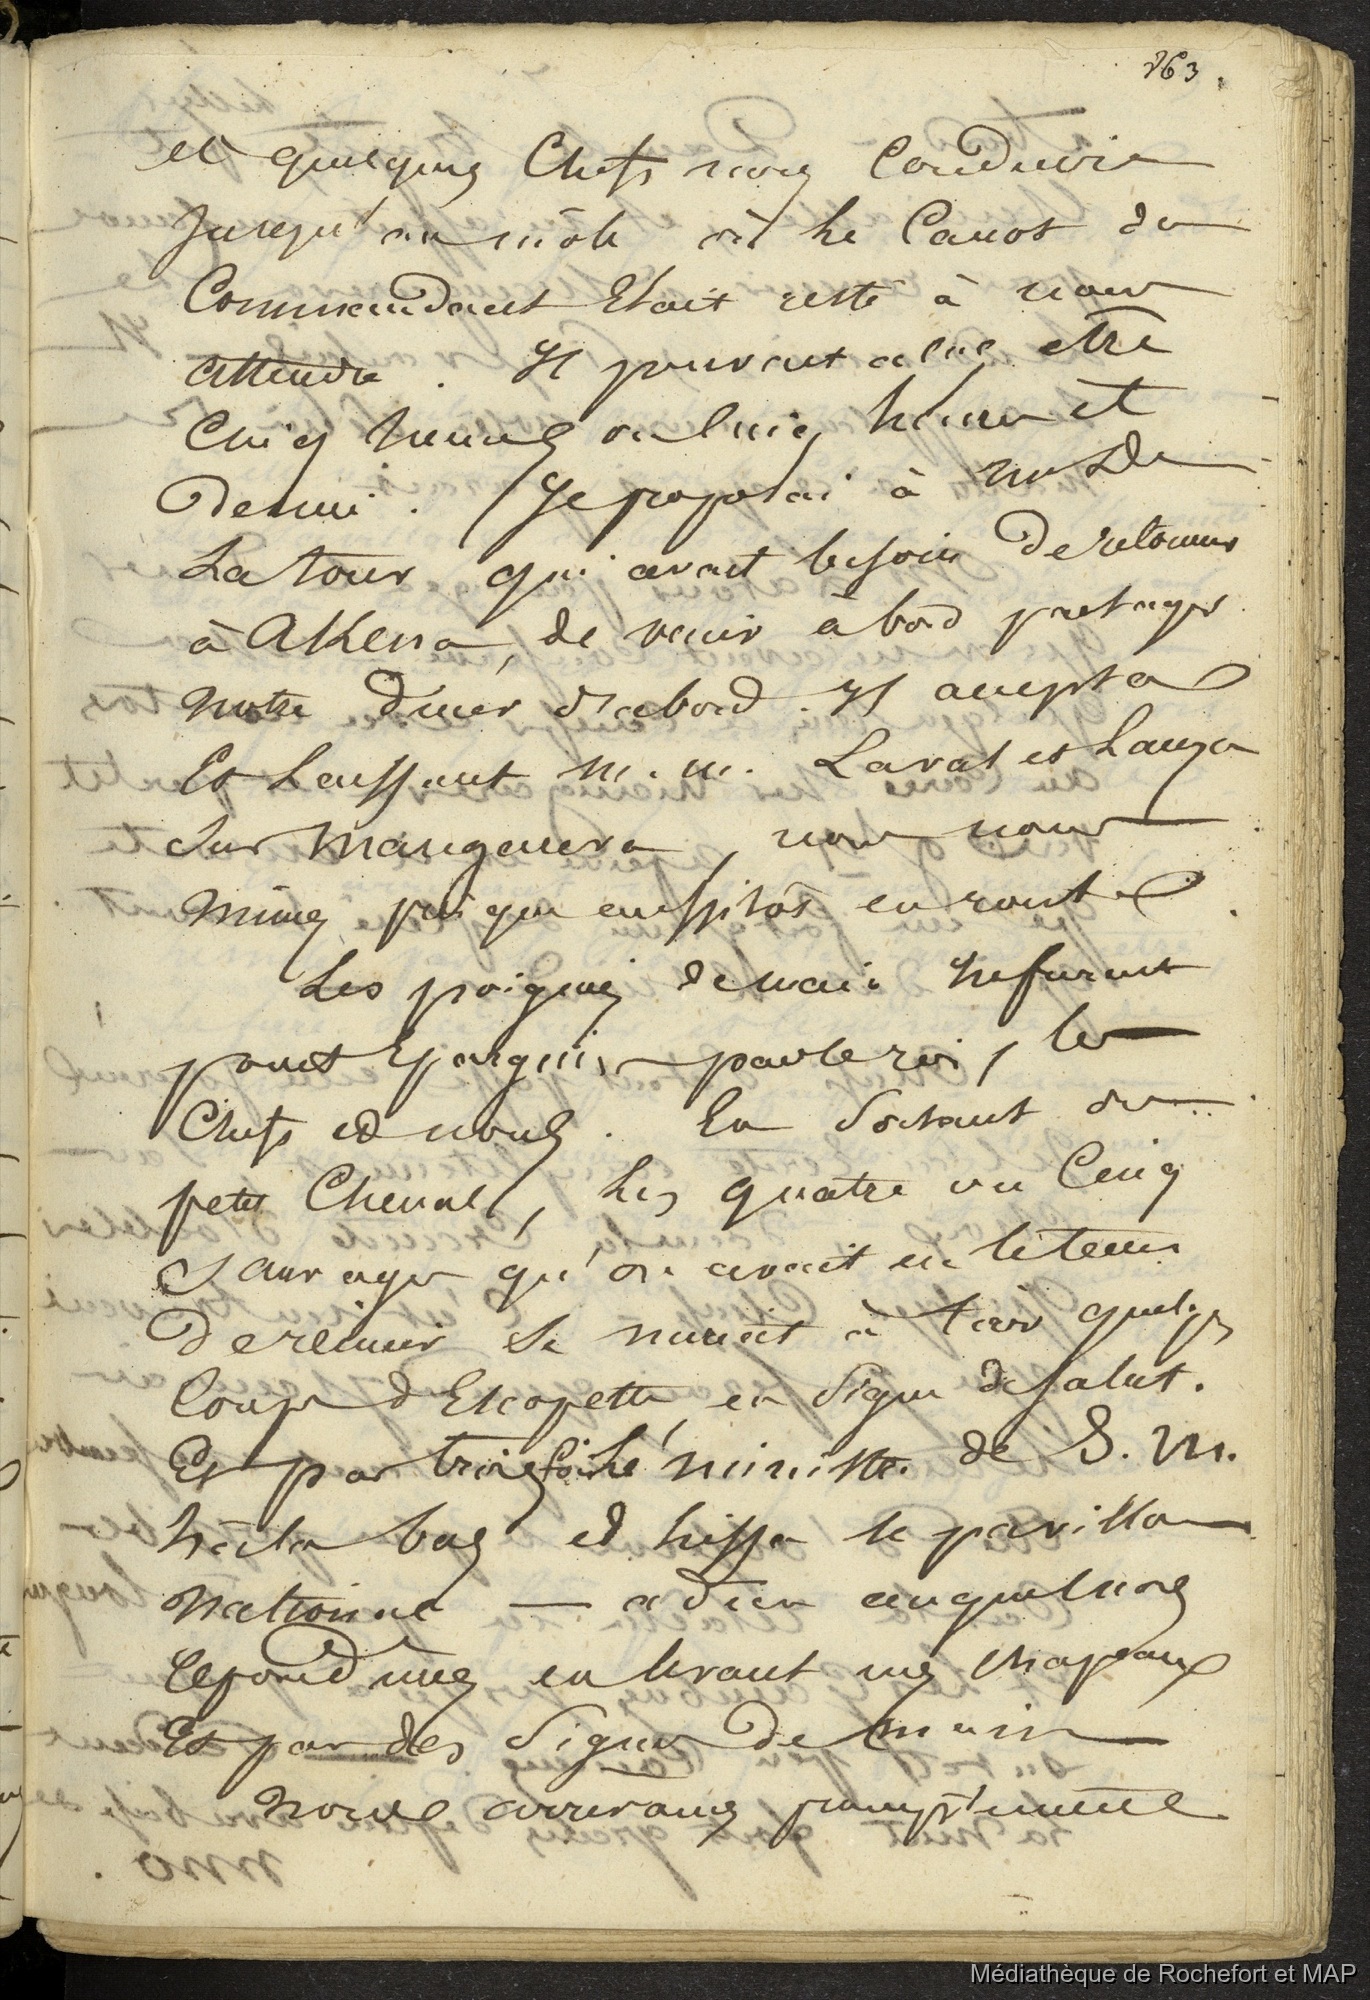 263.
et quelques Chefs nous Conduire
Jusqu'au môle où le Canot du
Commandant Etait resté à nous
attendre. Il pouvait alors être
Cinq heures ou Cinq heures et
Demie. Je proposai à Mr De
La Tour qui avait besoin De retourner
à AKena, de venir à bord partager
notre Diner D'abord. Il accepta
Et Laissant M. M. Laval et
Sur Mangareva, nous nous
mîmes presque aussitôt en route
Les poignées de main ne furent
point Epargnées par le roi, les
Chefs et nous. En Sortant du
petit Chenal, les quatre ou Cinq
Sauvages qu'on avait eu le tems
De réunir Se mirent à tirer quelques
Coups d'Escopette en Signe de salut.
Et par trois fois le ministre de S. M.
hêla bas et hissa le pavillon
National — adieu auquel nous
répondimes en levant nos chapeaux
Et par des Signes De main
Nous arrivames promptement
Médiathèque de Rochefort et MAP